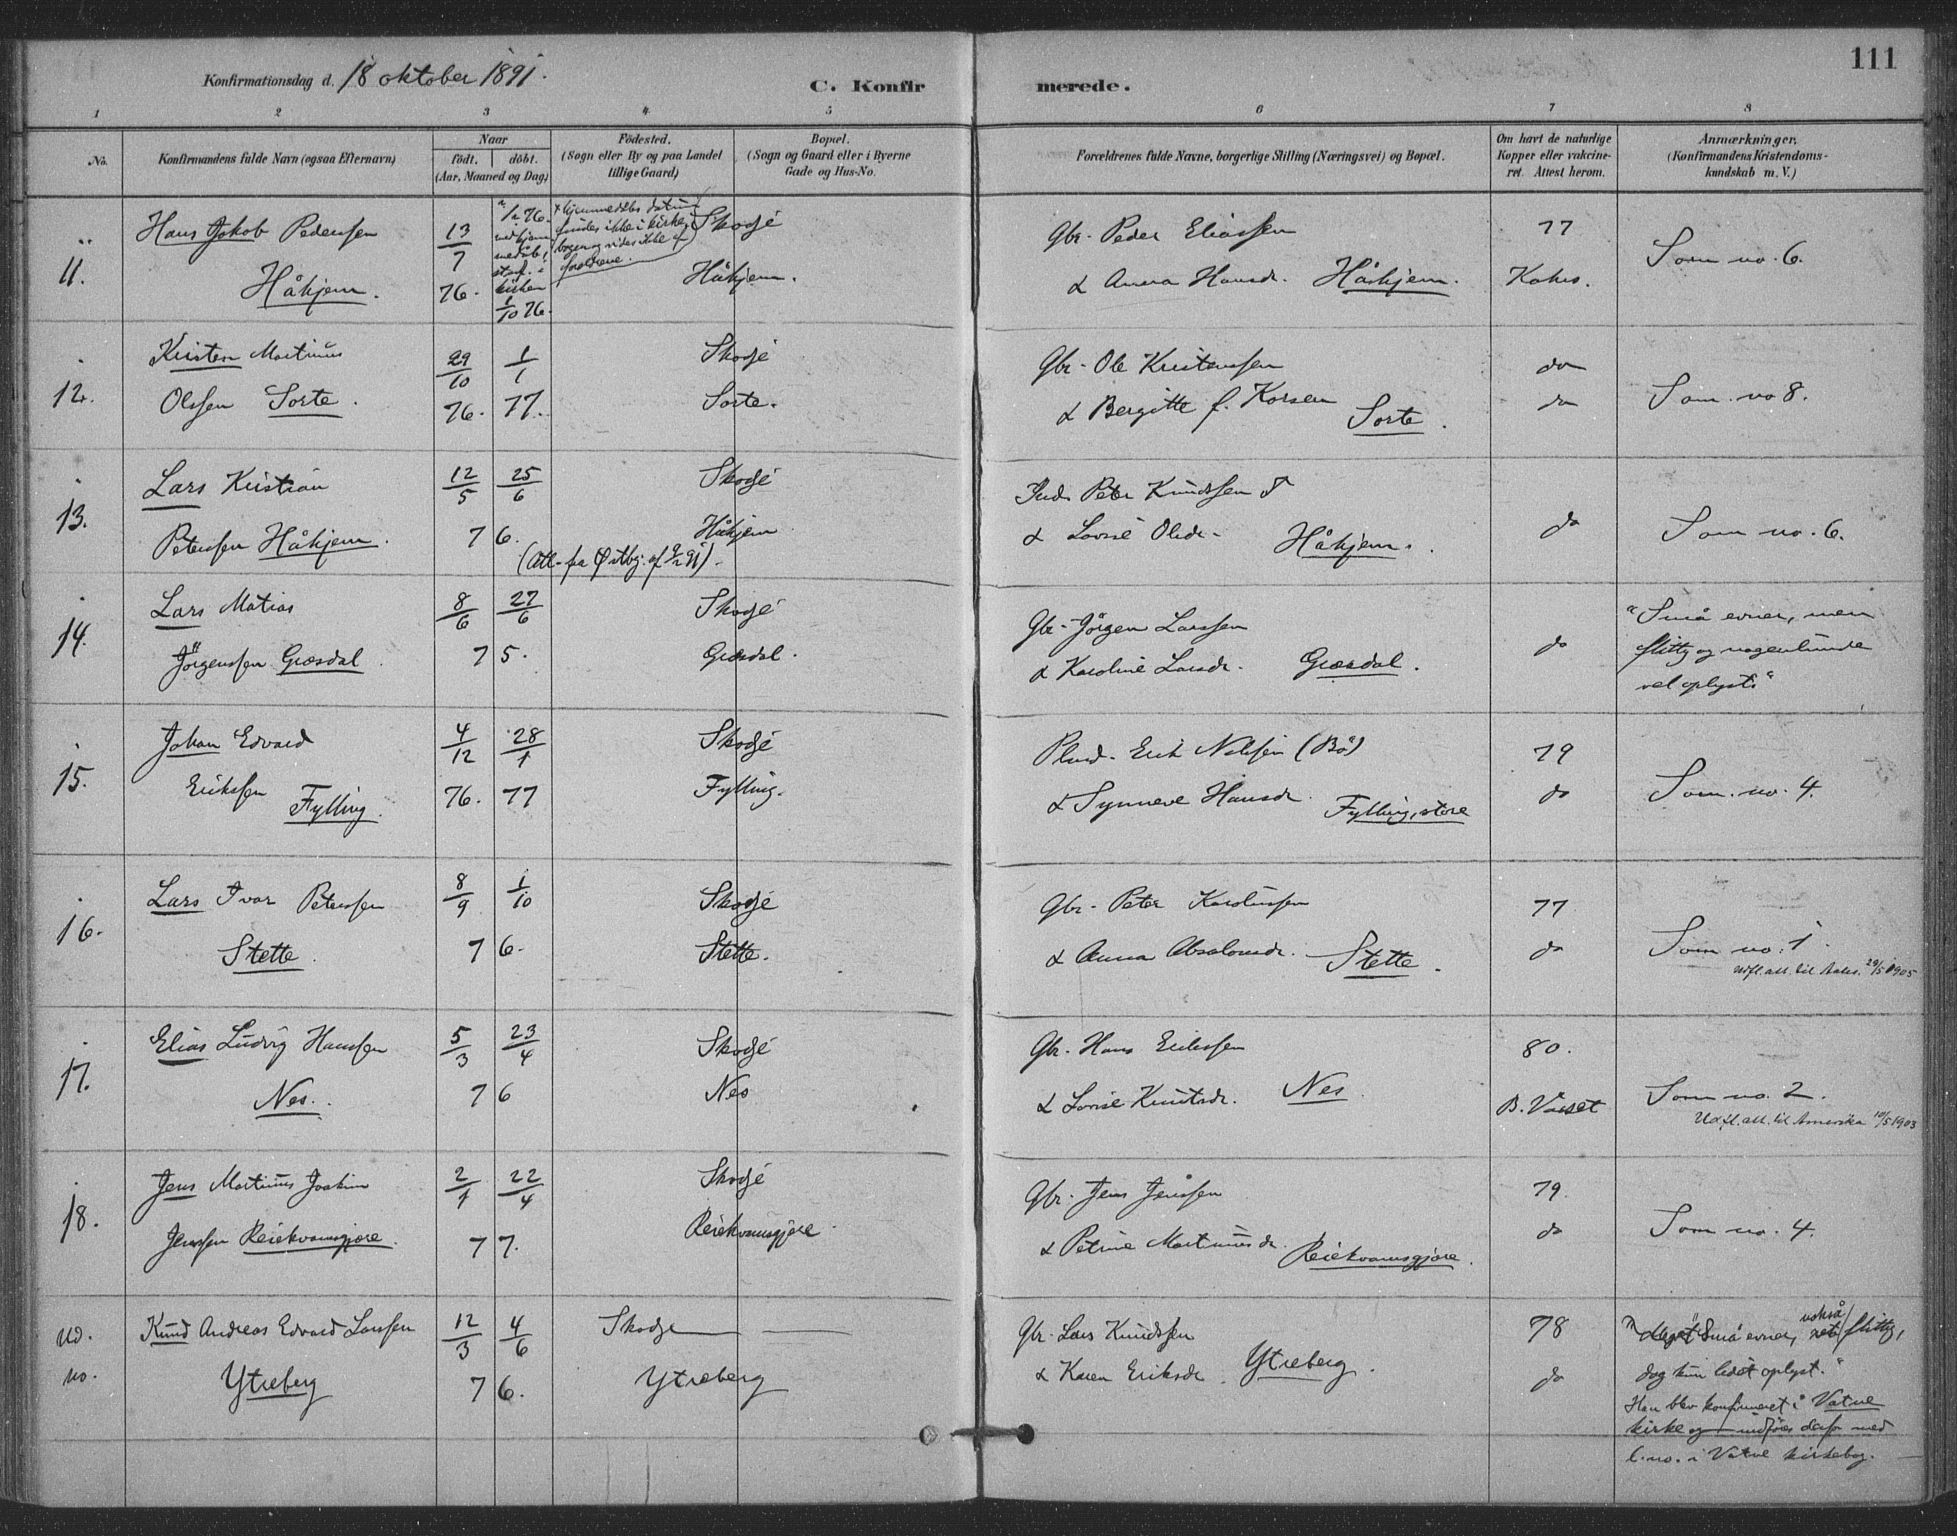 111
Konfirmationsdag d. 18 oktober 1891.
C. Konfirmerede.
1 2 3 4 5 6 7 8
No.
Konfirmandens fulde Navn (ogsaa Efternavn)
Naar
födt. döbt.
(Aar, Maaned og Dag)
Födested.
(Sogn eller By og paa Landet
tillige Gaard)
Bopæl.
(Sogn og Gaard eller i Byerne
Gade og Hus-No.
Forældrenes fulde Navne, borgerlige Stilling (Næringsvei) og Bopæl.
Om havt de naturlige
Kopper eller vakcineret. Attest herom.
Anmærkninger.
(Konfirmandens Kristendomskundskab m. V.)
11. Hans Jakob Pedersen
Håhjem.
13/7 76.
kirken
1/10 76.
findes ikke i kirkebogen og vides ikke af
forældrene.
Skodje
Håhjem.
Gbr. Peder Eliassen
& Anna Hansdr. Håhjem.
77
Som no. 6.
12. Kristen Martinus
Olssen Sorte.
29/10 76. 1/1 77.
Skodje
Sorte.
Gbr. Ole Kristensen
& Bergitte f. Korsen Sorte.
do
do
Som no 8.
13. Lars Kristian
Peterssen Håhjem.
12/5 25/6
76.
Skodje
Håhjem
Peter Knudssen
& Lovise Olsdr. Håhjem.
do
Som no. 6.
14. Lars Matias
Jörgenssen Græsdal
8/6 27/6
75.
Skodje
Græsdal.
Gbr. Jörgen Larssen
& Karoline Larsdr. Græsdal.
do
"Små evner, men
flittig og nogenlunde
vel oplyst."
15. Johan Edvard
Erikssen Fylling.
4/12 76. 28/1 77
Skodje
Fylling.
Erik Nilssen (Bö)
& Synneve Hansdr. Fylling, store
79
do
Som no. 4.
16. Lars Ivar Peterssen
Stette.
8/9 1/10
76.
Skodje
Stette.
Gbr. Peter Karolussen
& Anna Absalonsdr. Stette.
77
do
Som no. 1.
Udfl. att. til Aales. 29/5 1905
17. Elias Ludvig Hanssen
Nes.
5/3 23/4
76
Skodje
Nes
Gbr. Hans Erikssen
& Lovise Knutsdr. Nes
80.
Som no. 2.
Udfl. att. til Amerika 10/5 1903
18. Jens Martinus Joakim
Jenssen Reiekvamsgjære.
2/1 22/4
77.
Skodje
Reiekvamsgjære.
Gbr. Jens Jenssen
& Petrine Martinusdr. Reiekvamsgjære.
79.
do
Som no. 4.
Ud.
no.
Knud Andreas Edvard Larssen
Ytreberg
12/3 4/6
76.
Skodje
Ytreberg
Gbr. Lars Knudssen
& Karen Eriksdr. Ytreberg.
78
do
Små evner, også flittig,
dog kun lidet oplyst."
Han blev konfirmeret i Vatne
kirke og indføres derfor med
l.no. i Vatne kirkebog.